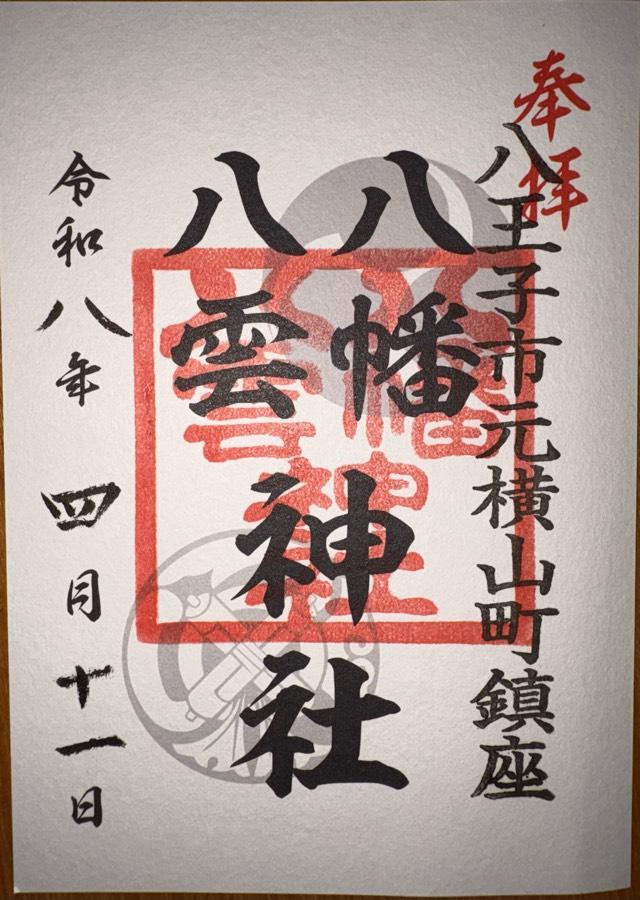 奉拝
八王子市元横山町鎮座
八幡
八雲
神社
令和八年 四月十一日